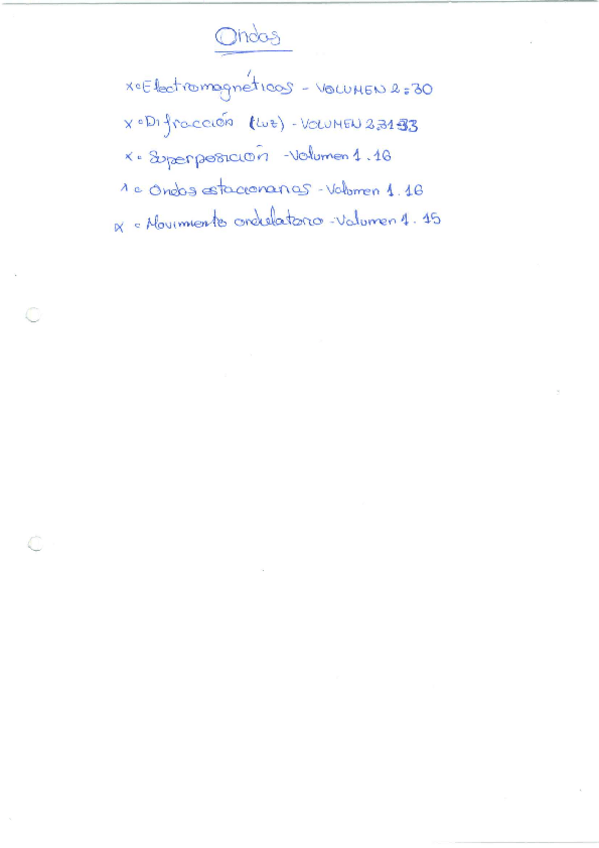 Ondas
x • Electromagnéticas - VOLUMEN 2:30
x • Difracción (luz) - VOLUMEN 2:31-33
x • Superposición - Volumen 1.16
1 • Ondas estacionarias - Volumen 1.16
x • Movimiento ondulatorio - Volumen 1.15